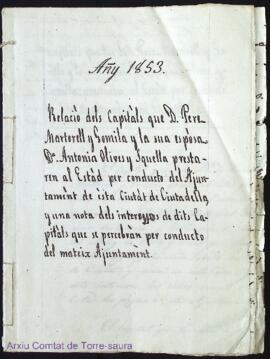 Añy 1853.
Relació dels Capitals que D. Pere
Martorell y Gomila y la sua espòsa
Dª. Antonia Olives y Squella presta-
ren al Estád per conducto del Ajun-
tamènt de ista Ciutát de Ciutadella,
y una nota dels interessos de dits Ca-
pitáls que se percebrán per conducto
del mateix Ajuntamènt.
Arxiu Comtat de Torre-saura